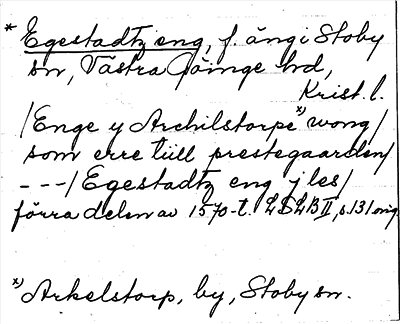 * Egestadtz eng, f. äng i Stoby
sn, Västra Göinge hd,
Krist. l.
/Enge y Archilstorpe x) wong/
som erre tiill prestegaarden/
---/Egestadtz eng j les/
förra delen av 1570-t. LDLB II, s. 131 orig.
x) Arkelstorp, by, Stoby sn.